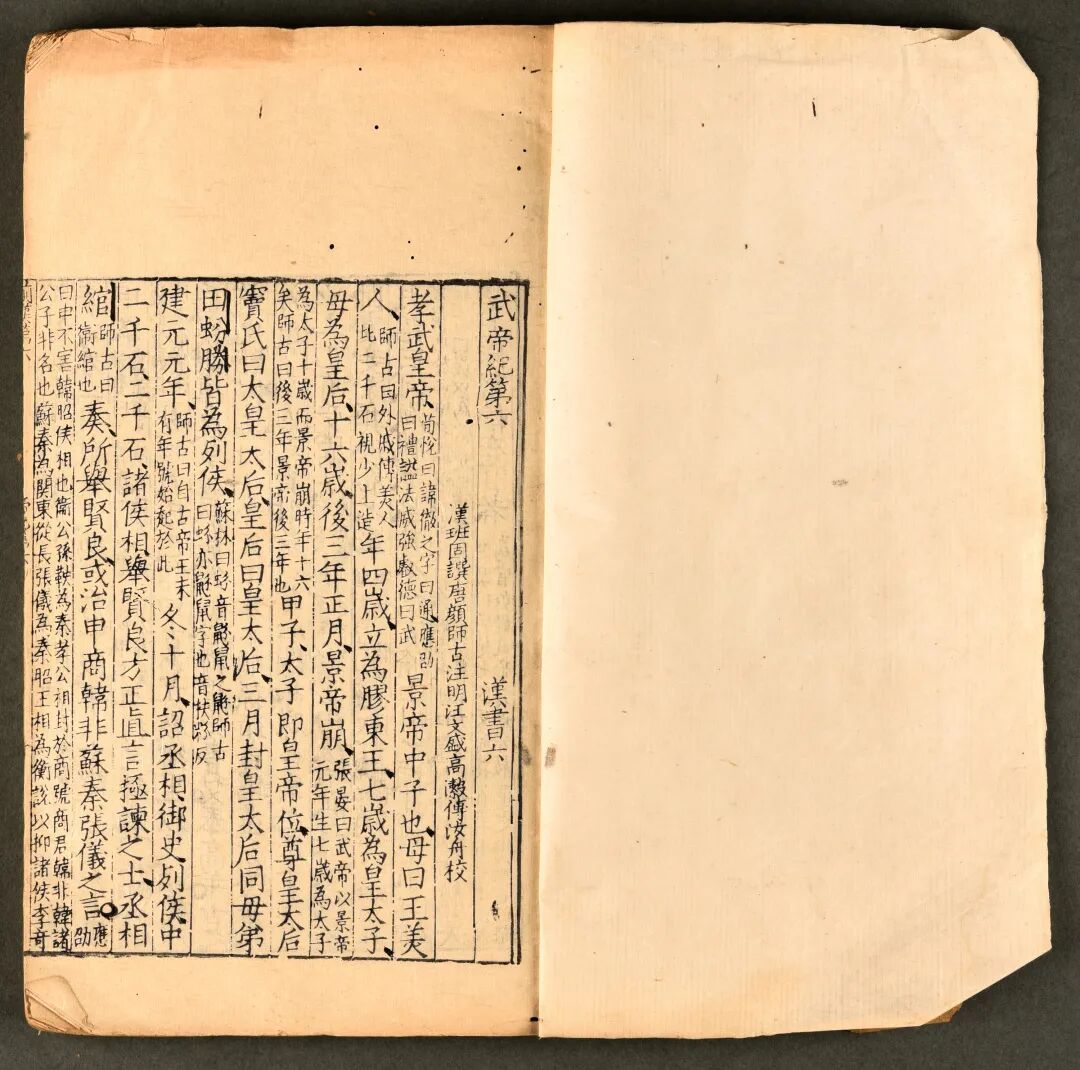 武帝紀第六　漢書六
漢班固譔唐顏師古注明汪文盛高瀫傅汝舟校
孝武皇帝荀悅曰諱徹之字曰通應劭曰禮謚法威強叡德曰武景帝中子也母曰王美
人師古曰外戚傳美人比二千石視少上造年四歲立為膠東王七歲為皇太子
母為皇后十六歲後三年正月景帝崩張晏曰武帝以景帝元年生七歲為太子
為太子十歲而景帝崩時年十六矣師古曰後三年景帝後三年也甲子太子即皇帝位尊皇太后
竇氏曰太皇太后皇后曰皇太后三月封皇太后同母弟
田蚡勝皆為列侯蘇林曰蚡音鼢鼠之鼢師古曰蚡亦鼢鼠字也音扶粉反
建元元年師古曰自古帝王未有年號始起於此冬十月詔丞相御史列侯中
二千石二千石諸侯相舉賢良方正直言極諫之士丞相
綰師古曰衞綰也奏所舉賢良或治申商韓非蘇秦張儀之言應劭
曰申不害韓昭侯相也衞公孫鞅為秦孝公相封於商號商君韓非韓諸公子非名也蘇秦為關東從長張儀為秦昭王相為衡說以抑諸侯李奇